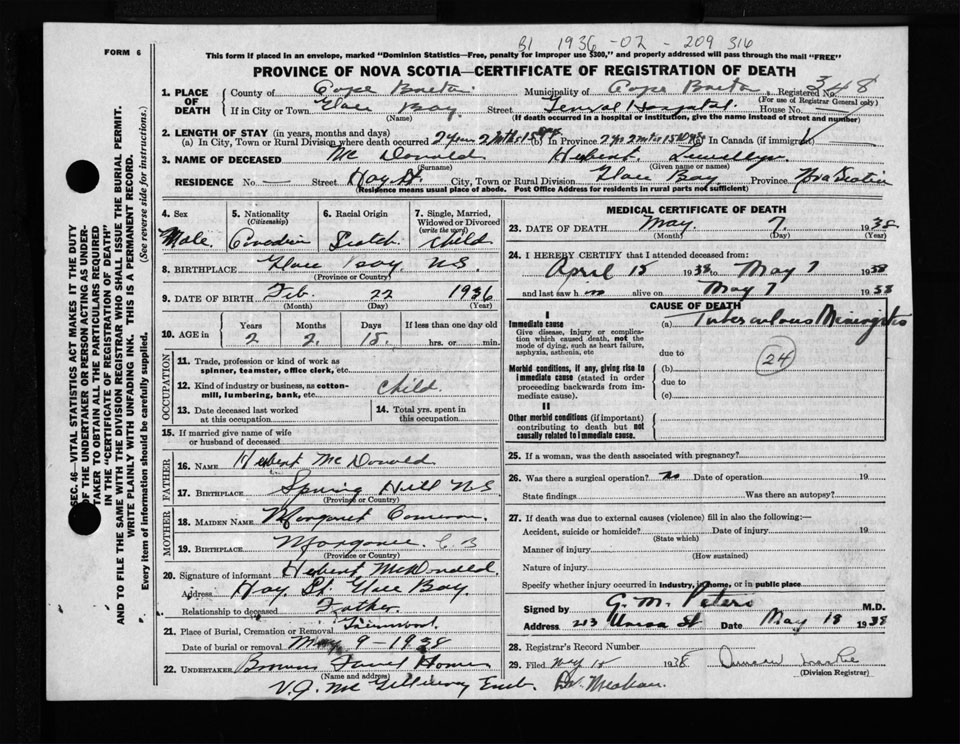 B1 1936-02-209 316
FORM 6
This form if placed in an envelope, marked "Dominion Statistics—Free, penalty for improper use $300," and properly addressed will pass through the mail "FREE"
PROVINCE OF NOVA SCOTIA—CERTIFICATE OF REGISTRATION OF DEATH
1. PLACE OF DEATH County of Cape Breton Municipality of Cape Breton Registered No. 348
(For use of Registrar General only)
If in City or Town Glace Bay Street General Hospital House No.
(Name) (If death occurred in a hospital or institution, give the name instead of street and number)
2. LENGTH OF STAY (in years, months and days)
(a) In City, Town or Rural Division where death occurred 2 yrs 2 mths 15 (b) In Province 2 yrs 2 mths 15 (c) In Canada (if immigrant)
3. NAME OF DECEASED Mc Donald Herbert Lewellyn
(Surname) (Given name or names)
RESIDENCE No. Street Hay St. City, Town or Rural Division Glace Bay Province Nova Scotia
(Residence means usual place of abode. Post Office Address for residents in rural parts not sufficient)
4. Sex Male
5. Nationality (Citizenship) Canadian
6. Racial Origin Scotch
7. Single, Married, Widowed or Divorced (write the word) child
8. BIRTHPLACE Glace Bay N.S.
(Province or Country)
9. DATE OF BIRTH Feb. 22 1936
(Month) (Day) (Year)
10. AGE in Years 2 Months 2 Days 15 If less than one day old hrs. or min.
OCCUPATION
11. Trade, profession or kind of work as spinner, teamster, office clerk, etc.
12. Kind of industry or business, as cotton-mill, lumbering, bank, etc. child
13. Date deceased last worked at this occupation
14. Total yrs. spent in this occupation
15. If married give name of wife or husband of deceased
FATHER
16. NAME Herbert McDonald
17. BIRTHPLACE Spring Hill NS
(Province or Country)
MOTHER
18. MAIDEN NAME Margaret Cameron
19. BIRTHPLACE Margaree C B
(Province or Country)
20. Signature of informant Herbert McDonald
Address Hay St Glace Bay
Relationship to deceased Father
21. Place of Burial, Cremation or Removal
Date of burial or removal May 9-1938
22. UNDERTAKER Browns Home
(Name and address)
V.J. Mc Gillivray
MEDICAL CERTIFICATE OF DEATH
23. DATE OF DEATH May 7. 1938
(Month) (Day) (Year)
24. I HEREBY CERTIFY that I attended deceased from:
April 15 1938 to May 7 1938
and last saw him alive on May 7 1938
CAUSE OF DEATH
I
Immediate cause
Give disease, injury or complication which caused death, not the mode of dying, such as heart failure, asphyxia, asthenia, etc
(a) Tuberculous Meningitis
due to
Morbid conditions, if any, giving rise to immediate cause (stated in order proceeding backwards from immediate cause).
(b) 24
due to
(c)
II
Other morbid conditions (if important) contributing to death but not causally related to immediate cause.
25. If a woman, was the death associated with pregnancy?
26. Was there a surgical operation? no Date of operation 19
State findings Was there an autopsy?
27. If death was due to external causes (violence) fill in also the following:—
Accident, suicide or homicide? Date of injury 19
(State which)
Manner of injury
(How sustained)
Nature of injury
Specify whether injury occurred in industry, in home, or in public place
Signed by G. M. Peters M.D.
Address 213 Union St Date May 18 1938
28. Registrar's Record Number
29. Filed 1938
(Division Registrar)
SEC. 46—VITAL STATISTICS ACT MAKES IT THE DUTY
OF THE UNDERTAKER OR PERSON ACTING AS UNDER-
TAKER TO OBTAIN ALL THE PARTICULARS REQUIRED
IN THE "CERTIFICATE OF REGISTRATION OF DEATH"
AND TO FILE THE SAME WITH THE DIVISION REGISTRAR WHO SHALL ISSUE THE BURIAL PERMIT.
WRITE PLAINLY WITH UNFADING INK. THIS IS A PERMANENT RECORD.
Every item of information should be carefully supplied. (See reverse side for instructions.)